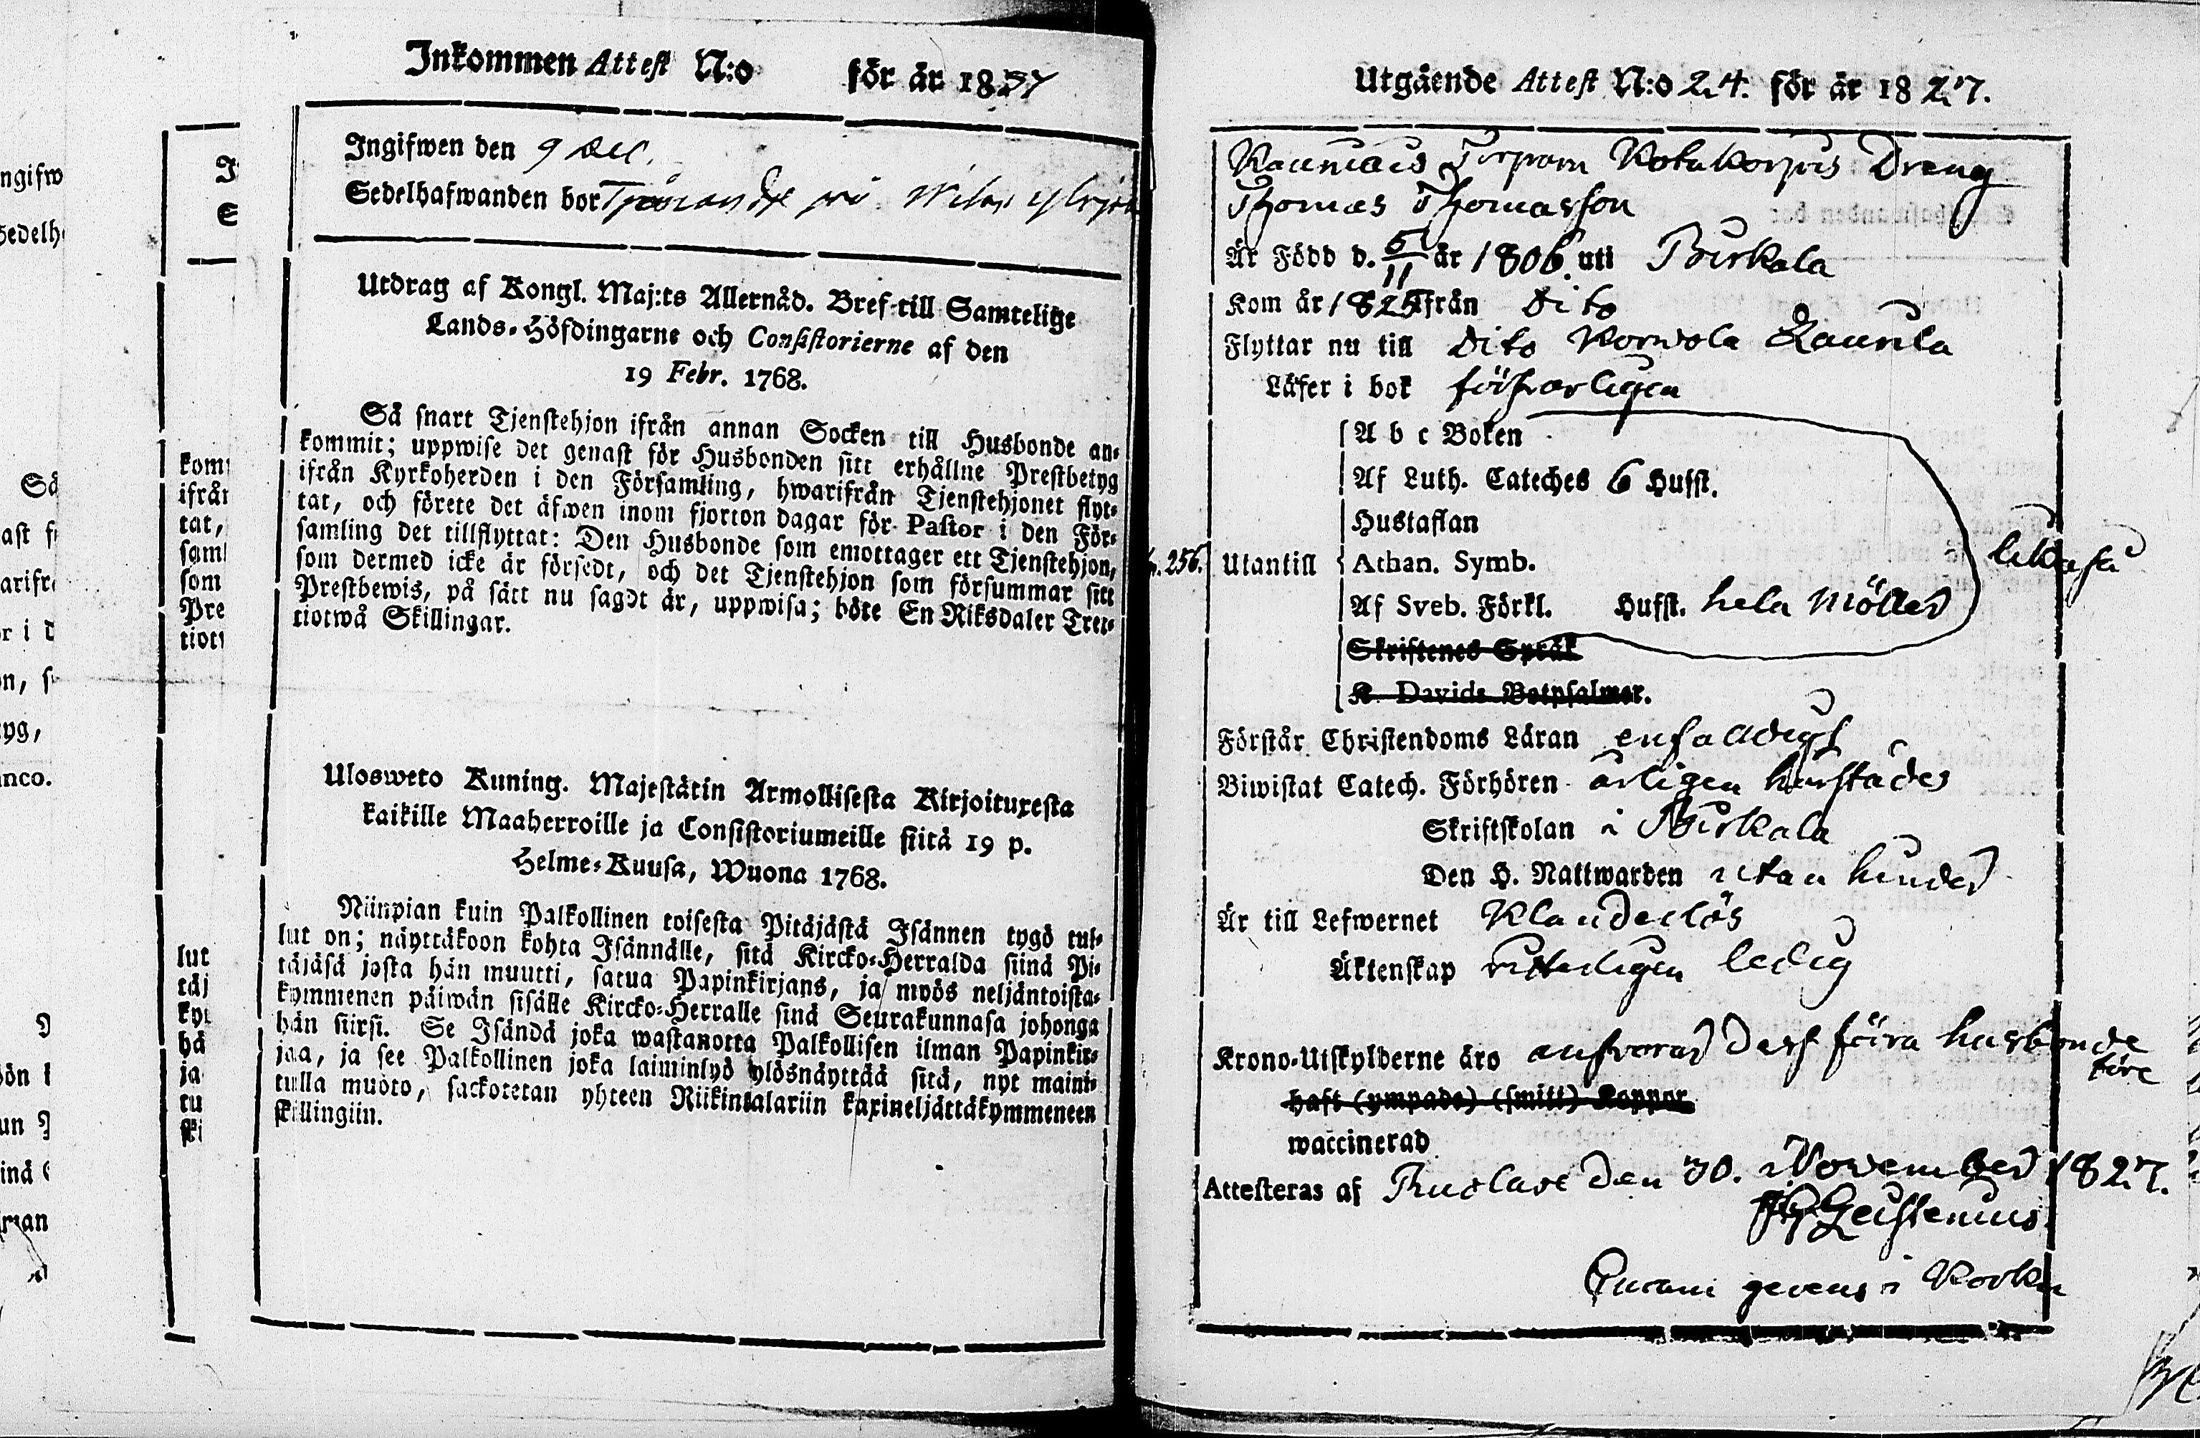 Inkommen Attest N:o för år 1827
Ingifwen den 9 Dec.
Sedelhafwanden bor
Utdrag af Kongl. Maj:ts Allernåd. Bref till Samtelige
Lands-Höfdingarne och Consistorierne af den
19 Febr. 1768.
Så snart Tjenstehjon ifrån annan Socken till Husbonde an-
kommit; uppwise det genast för Husbonden sitt erhållne Prestbetyg
ifrån Kyrkoherden i den Församling, hwarifrån Tjenstehjonet flyt-
tat, och förete det äfwen inom fjorton dagar för Pastor i den För-
samling det tillflyttat: Den Husbonde som emottager ett Tjenstehjon,
som dermed icke är försedt, och det Tjenstehjon som försummar sitt
Prestbewis, på sätt nu sagdt är, uppwisa; böte En Riksdaler Tret-
tiotwå Skillingar.
Ulosweto Kuning. Majestätin Armollisesta Kirjoituxesta
kaikille Maaherroille ja Consistoriumeille siitä 19 p.
Helme-Kuusa, Wuona 1768.
Niinpian kuin Palkollinen toisesta Pitäjästä Isännen tygö tul-
lut on; näyttäkoon kohta Isännälle, sitä Kircko-Herralda siinä Pi-
täjäsä josta hän muutti, satua Papinkirjans, ja myös neljäntoista-
kymmenen päiwän sisälle Kircko-Herralle sinä Seurakunnasa johonga
hän siirsi. Se Isändä joka wastanotta Palkollisen ilman Papinkir-
jaa, ja see Palkollinen joka laiminlyö ylösnäyttää sitä, nyt maini-
tulla muoto, sackotetan yhteen Riikintalariin kaxineljättäkymmeneen
skillingiin.
Utgående Attest N:o 24. för år 1827.
Torparn Kotakorpis Dreng
Thomas Thomasson
Är Född d. 5/11 år 1806. uti Birkala
Kom år 1825 från dito
Flyttar nu till dito Korvola Laurila
Läser i bok försvarligen
A b c Boken
Af Luth. Cateches 6 Hufst.
Hustaflan
p. 256. Utantill Athan. Symb. likaså
Af Sveb. Förkl. Hufst. hela Möller
Skriftenes Språk
K. Davids Botpsalmer.
Förstår Christendoms Läran enfaldigt
Biwistat Catech. Förhören årligen härstädes
Skriftskolan i Birkala
Den H. Nattwarden utan hinder
Är till Lefwernet Klanderlös
Äktenskap vitterligen ledig
Krono-Utskylderne äro ansvarar dess förra husbonde
före
haft (ympade) (smitt) Koppor
waccinerad
Attesteras af Ruolavi den 30. November 1827.